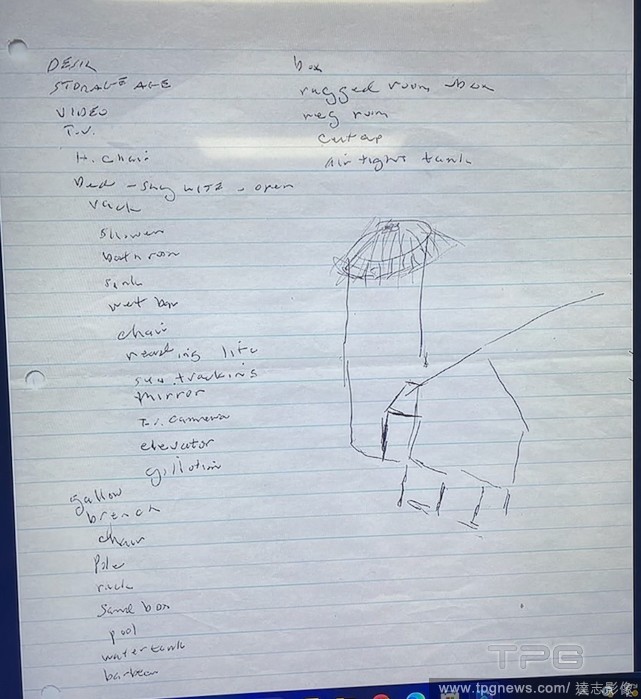 DESK
STORAGE AGE
VIDEO
T.V.
H. Chair
Bed - SKY LITE - open
rack
shower
bathroom
sink
wet bar
chair
reading lite
sun tracking
mirror
T.V. camera
elevator
gillotin
gallow
branch
chair
Pole
rack
sand box
pool
water tank
box
room box
reg room
air tight tank
TPG
www.tpgnews.com/ 達志影像